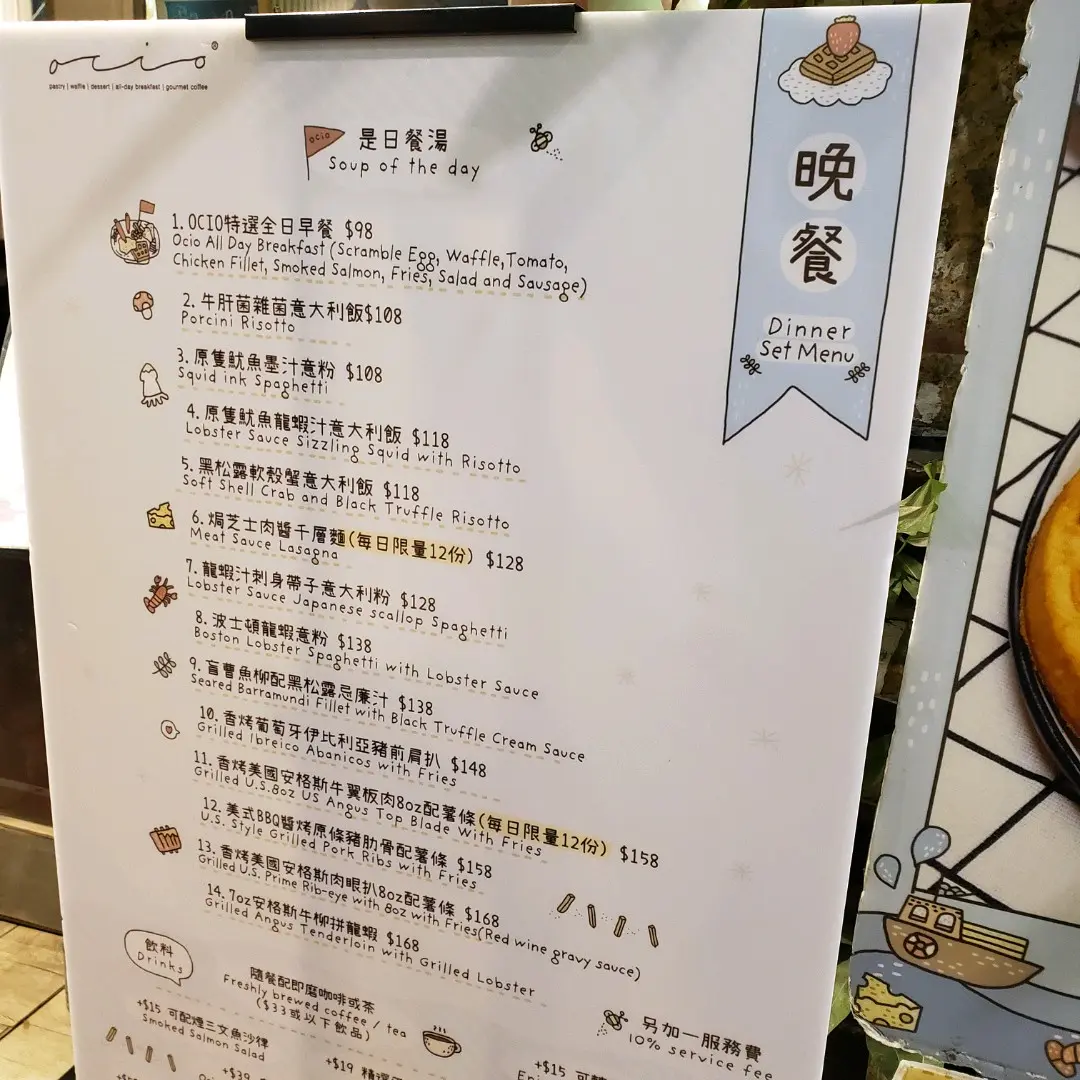 ocio®
pastry | waffle | dessert | all-day breakfast | gourmet coffee
ocio
是日餐湯
Soup of the day
晚餐
Dinner
Set Menu
1. OCIO特選全日早餐 $98
Ocio All Day Breakfast (Scramble Egg, Waffle,Tomato,
Chicken Fillet, Smoked Salmon, Fries, Salad and Sausage)
2. 牛肝菌雜菌意大利飯$108
Porcini Risotto
3. 原隻魷魚墨汁意粉 $108
Squid ink Spaghetti
4. 原隻魷魚龍蝦汁意大利飯 $118
Lobster Sauce Sizzling Squid with Risotto
5. 黑松露軟殼蟹意大利飯 $118
Soft Shell Crab and Black Truffle Risotto
6. 焗芝士肉醬千層麵(每日限量12份) $128
Meat Sauce Lasagna
7. 龍蝦汁刺身帶子意大利粉 $128
Lobster Sauce Japanese scallop Spaghetti
8. 波士頓龍蝦意粉 $138
Boston Lobster Spaghetti with Lobster Sauce
9. 盲曹魚柳配黑松露忌廉汁 $138
Seared Barramundi Fillet with Black Truffle Cream Sauce
10. 香烤葡萄牙伊比利亞豬前肩扒 $148
Grilled Ibreico Abanicos with Fries
11. 香烤美國安格斯牛翼板肉8oz配薯條(每日限量12份) $158
Grilled U.S.8oz US Angus Top Blade With Fries
12. 美式BBQ醬烤原條豬肋骨配薯條 $158
U.S. Style Grilled Pork Ribs with Fries
13. 香烤美國安格斯肉眼扒8oz配薯條 $168
Grilled U.S. Prime Rib-eye with 8oz with Fries(Red wine gravy sauce)
14. 7oz安格斯牛柳拼龍蝦 $168
Grilled Angus Tenderloin with Grilled Lobster
飲料
Drinks
隨餐配即磨咖啡或茶
Freshly brewed coffee / tea
($33或以下飲品)
另加一服務費
10% service fee
+$15 可配煙三文魚沙律
Smoked Salmon Salad
+$19 精選
+$15 可
+$39